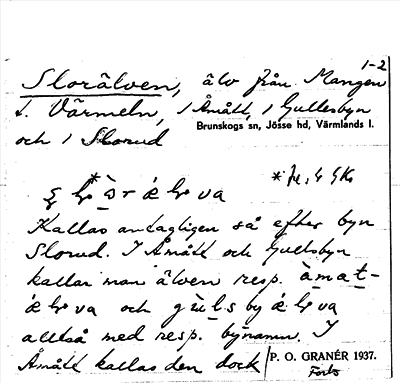 1-2
Slorälven, älv från Mangen
t. Värmeln, i Åmått, i Gullsbyn
Brunskogs sn, Jösse hd, Värmlands l.
och i Slorud
Kallas antagligen så efter byn
Slorud. I Åmått och Gullsbyn
kallar man älven resp. àmat-
va och by va
alltså med resp. bynamn. I
Åmått kallas den dock
P. O. GRANÉR 1937.
Forts